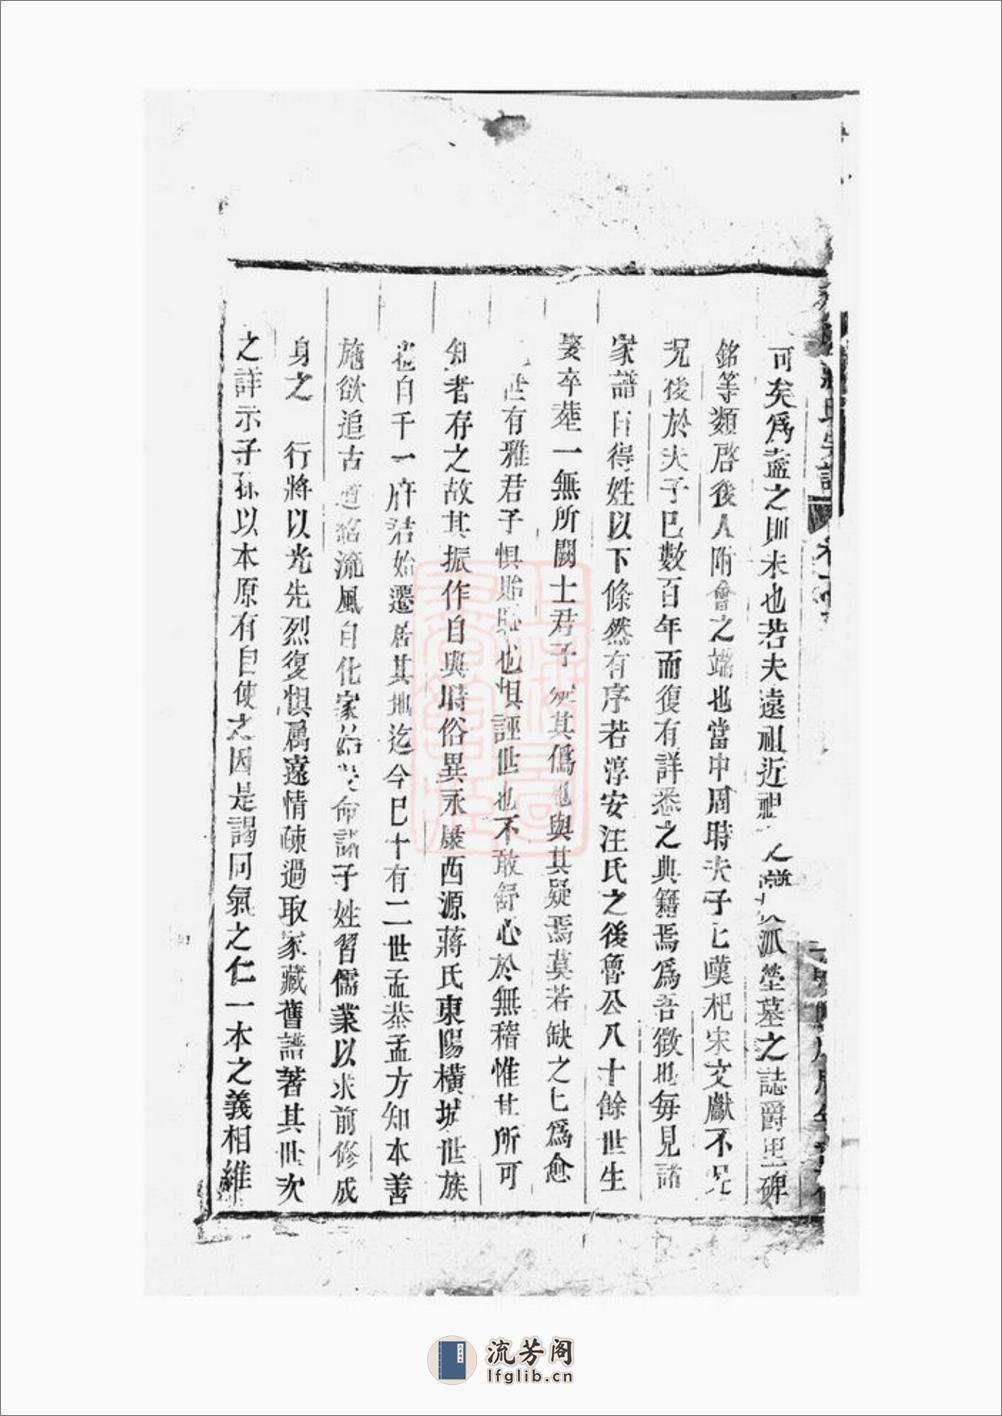 可矣為盡之則未也若夫遠祖近祖派塋墓之誌爵里碑
銘等類啓後人附會之端也當中周時夫子已嘆杞宋文獻不足
况後於夫子已數百年而復有詳悉之典籍焉為吾徵也每見諸
家譜自得姓以下條然有序若淳安汪氏之後魯公八十餘世生
娶卒葬一無所闕士君子其偽也與其疑焉莫若缺之之為愈
世有雅君子惧貽也惧誣世也不敢舒心於無稽惟其所可
知者存之故其振作自與時俗異永康西源蔣氏東陽橫城世族
也自千一府君始遷居其地迄今巳十有二世孟恭孟方知本善
施欲追古道流風自化家命諸子姓習儒業以求前修成
身之 行將以光先烈復惧属遠情疎過取家藏舊譜著其世次
之詳示子孫以本原有自使之因是謁同氣之仁一本之義相維
流芳阁
lfglib.cn